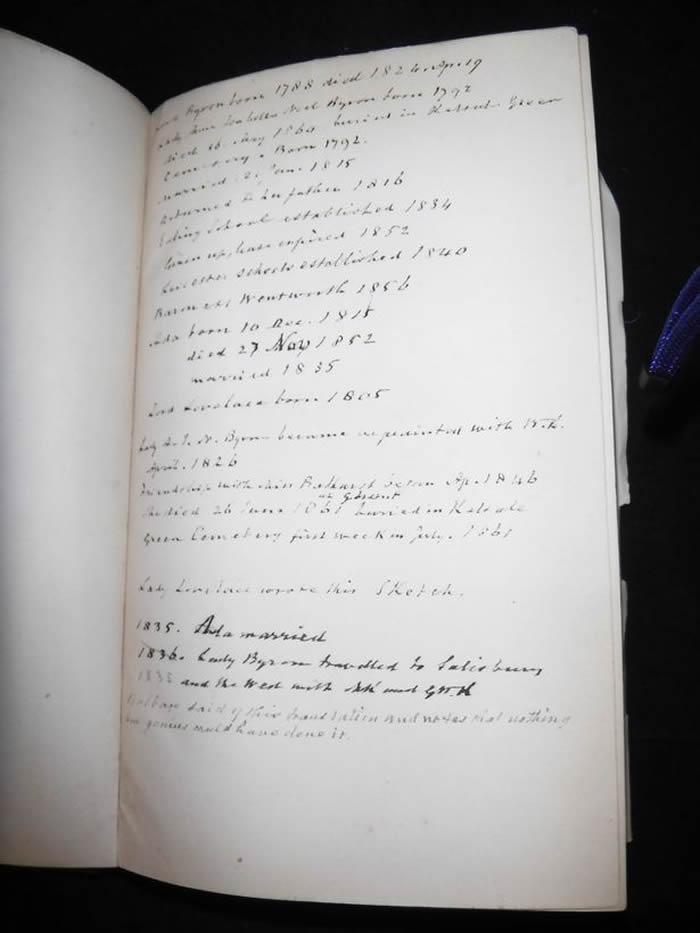 Lord Byron born 1788 died 1824. Ap. 19
Lady Anne Isabella Noel Byron born 1792
died 16 May 1860 buried in Kelsal Green
Cemetery. Born 1792.
Married 2, Jan. 1815
Returned to her father 1816
Ealing School established 1834
Given up, lease expired 1852
Leicester schools established 1840
Baroness Wentworth 1856
Ada born 10 Dec. 1815
died 27 Nov 1852
married 1835
Lord Lovelace born 1805
Lady A. I. N. Byron became acquainted with
April. 1826
Friendship with Miss began Ap. 1846
She died 26 June 1861 buried in Kelsale
Green Cemetery first week in July. 1861
Lady Lovelace wrote this Sketch.
1835. Ada married
1836. Lady Byron travelled to Salisbury
1835 and the West with and
Babbage said of this translation and notes that nothing
but genius could have done it.